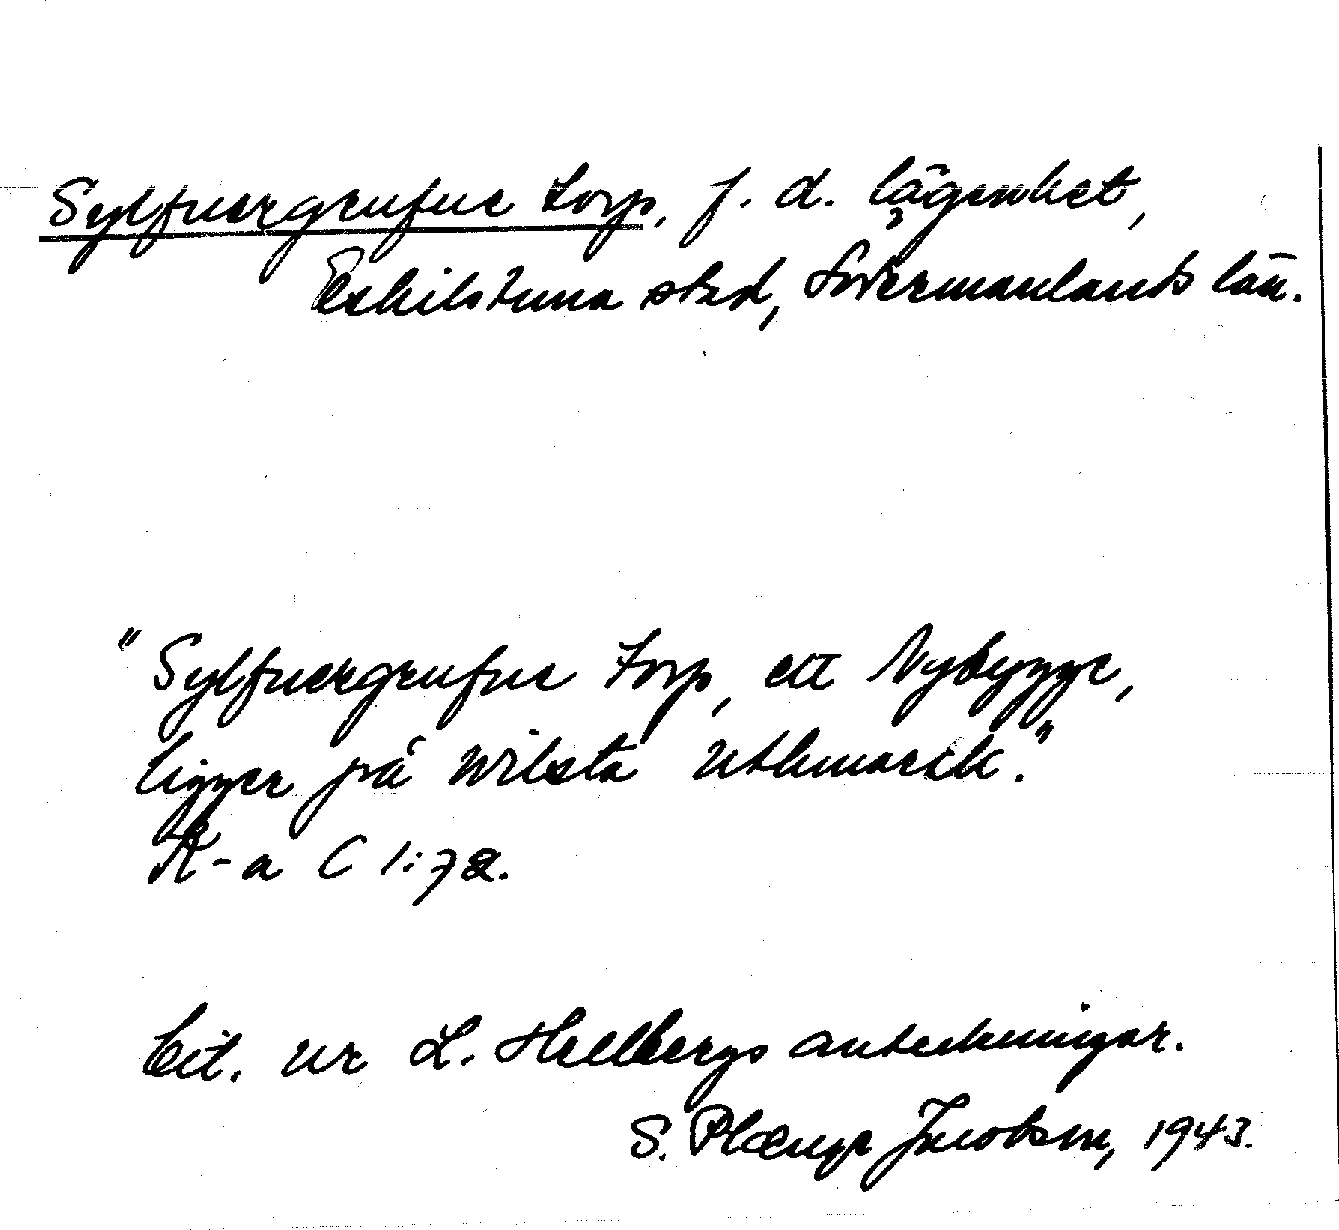 Sylfuergrufue torp, f. d. lägenhet,
Eskilstuna stad, Södermanlands län.
"Sylfuergrufue Torp, ett Nybygge,
ligger på Wilsta Uthmarck."
K-a C 1:72.
Cit. ur L. Hellbergs anteckningar.
S. Plænge Jacobson, 1943.